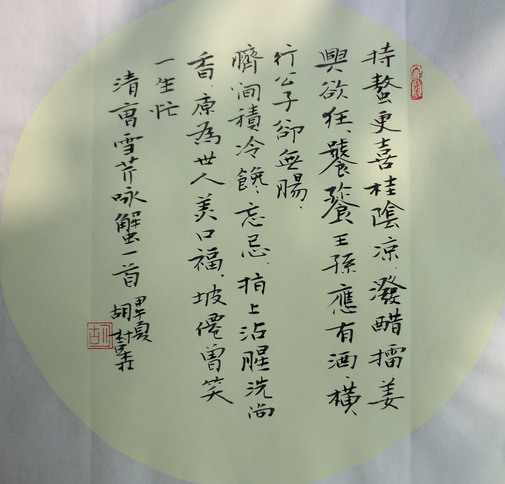 持螯更喜桂陰凉潑醋擂姜
興欲狂饕餮王孫應有酒橫
行公子卻無腸
臍间積冷饞忘忌指上沾腥洗尚
香原為世人美口福坡僊曾笑
一生忙
清曹雪芹咏蟹一首
甲午夏
胡